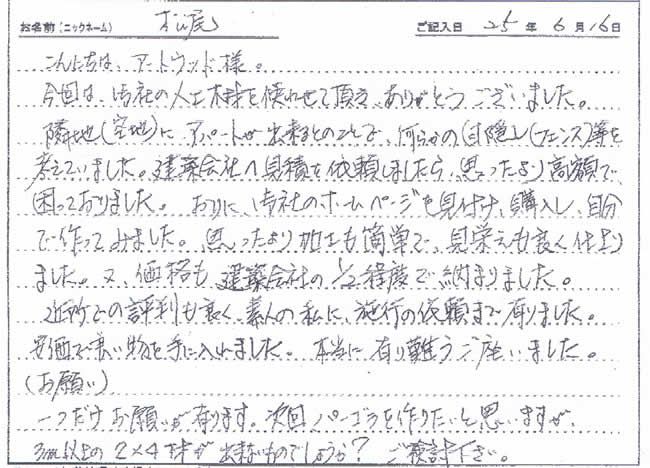 お名前(ニックネーム) 松尾 ご記入日 25年6月16日
こんにちは、アートウッド様。
今回は、御社の人工木材を使わせて頂き、ありがとうございました。
隣地(空地)にアパートが出来るとのことで、何らかの(目隠し(フェンス)等を
考えていました。建築会社へ見積を依頼しましたら、思ったより高額で、
困っておりました。おりに、御社のホームページを見付け、購入し、自分
で作ってみました。思ったより加工も簡単で、見栄えも良く仕上り
ました。又、価格も建築会社の1/2程度で納まりました。
近所での評判も良く、素人の私に、施行の依頼まで有りました。
安価で良い物を手に入れました。本当に有り難うご座いました。
(お願い)
一つだけお願いが有ります。次回パーゴラを作りたいと思いますが、
3m以上の2×4材が出来ないものでしょうか?ご検討下さい。